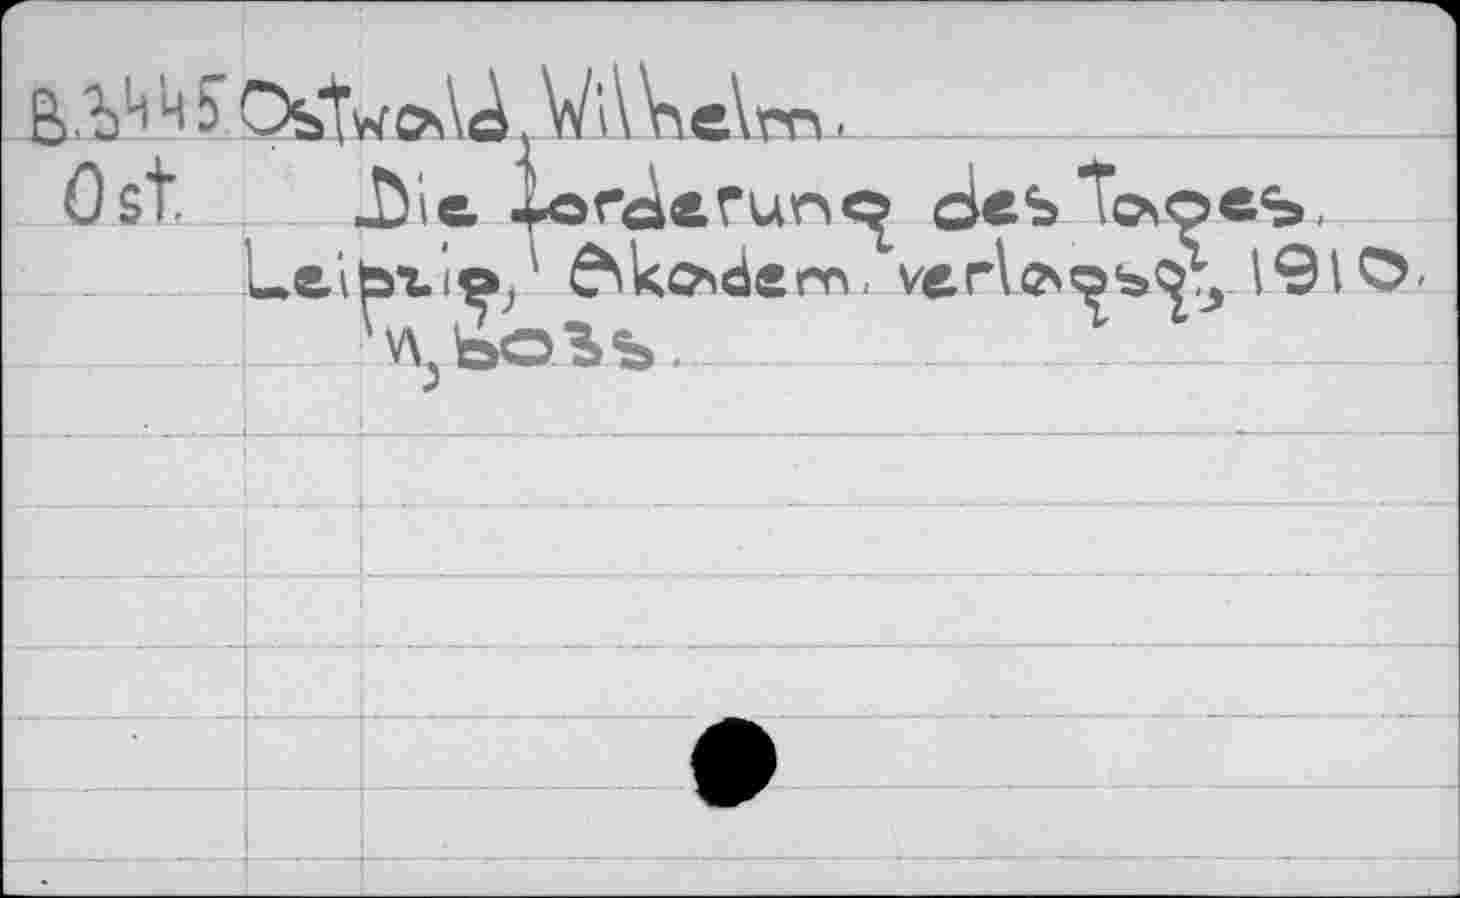 B.3445 Ostwald, Wilhelm.
Ost. Die Forderung des Tages.
Leipzig, Akadem. verlagsg., 1910.
v, 603 s.